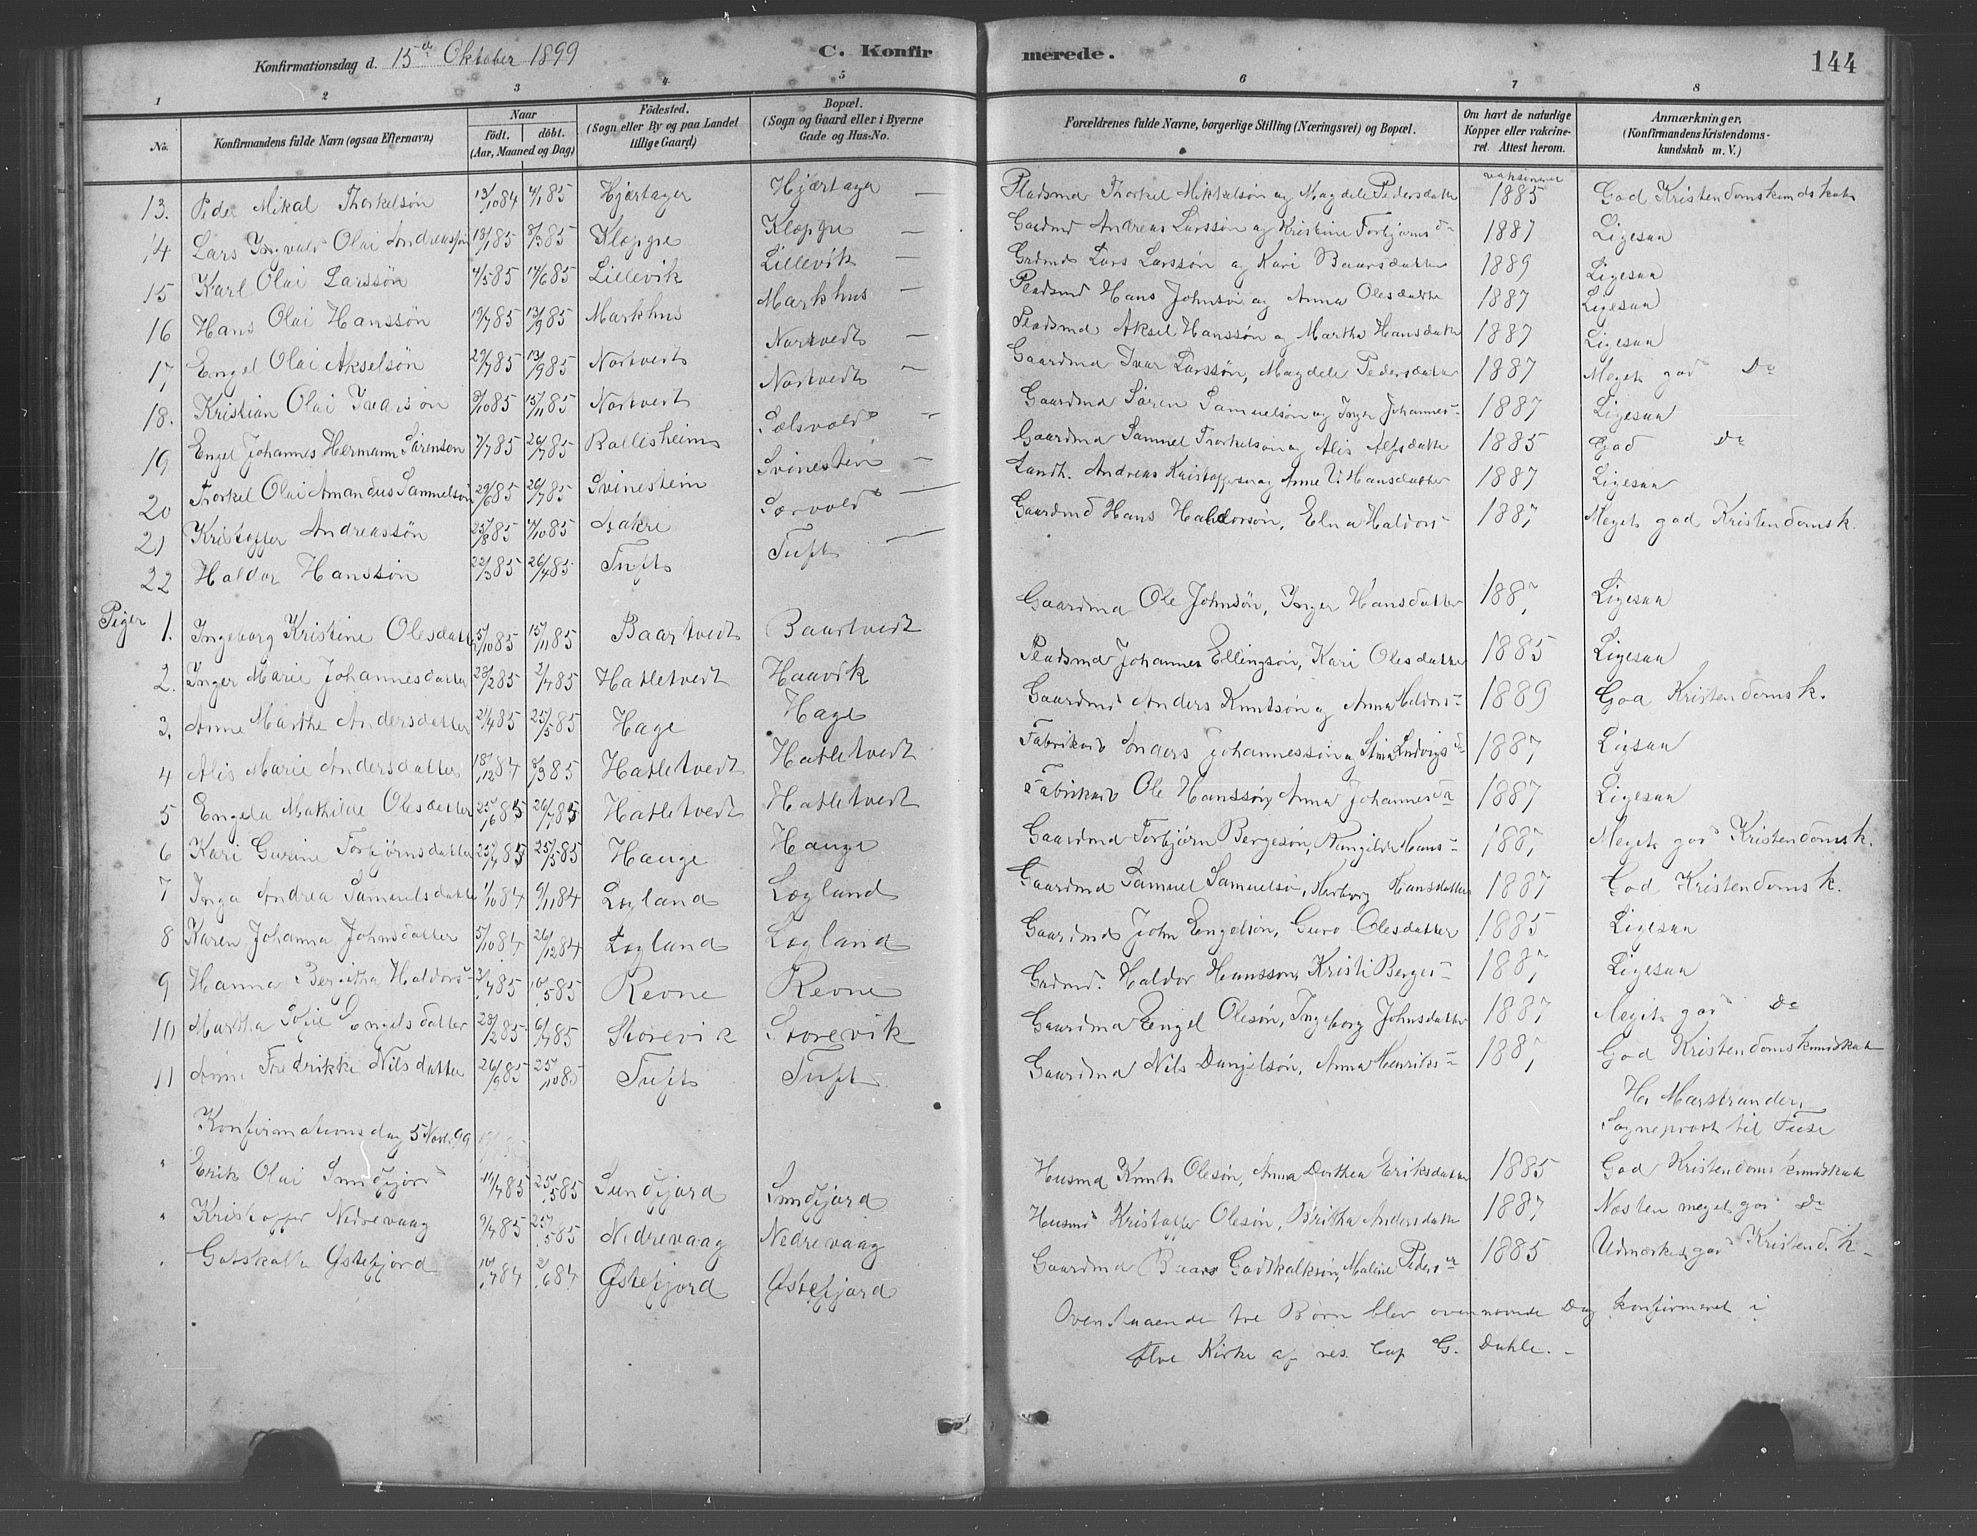 Konfirmationsdag d. 15de Oktober 1899
C. Konfirmerede.
144
1 2 3 4 5 6 7 8
No.
Konfirmandens fulde Navn (ogsaa Efternavn)
Naar
födt. döbt.
(Aar, Maaned og Dag)
Födested.
(Sogn eller By og paa Landet
tillige Gaard)
Bopæl.
(Sogn og Gaard eller i Byerne
Gade og Hus-No.
Forældrenes fulde Navne, borgerlige Stilling (Næringsvei) og Bopæl.
Om havt de naturlige
Kopper eller vakcine-
ret. Attest herom.
Anmærkninger,
(Konfirmandens Kristendoms-
kundskab m. V.)
13. Peder Mikal Thorkelsön 13/10 84 4/1 85 Hjærtager Hjærtager — Pladsmd Thorkel Mikkelsön og Magdele Pedersdatter 1885 God Kristendomskundskab
14 Lars Ingvald Olai Andreassön 18/1 85 8/3 85 Klepgre Klepgre — Gaardmd Andreas Larssön og Kristine Torbjörns d- 1887 Ligesaa
15 Karl Olai Larssön 4/5 85 14/6 85 Lillevik Lillevik — Grdmd Lars Larssön og Kari Baarsdatter 1889 Ligesaa
16 Hans Olai Hanssön 19/7 85 13/9 85 Markhus Markhus — Pladsmd Hans Johnsön og Anna Olesdatter 1887 Ligesaa
17, Engel Olai Akselsön 29/7 85 13/9 85 Nortvedt Nortvedt — Pladsmd Aksel Hanssön og Martha Hansdatter 1887 Ligesaa
18. Kristian Olai Ivarsön 8/10 85 15/11 85 Nortvedt Nortvedt — Gaardmd Ivar Larssön, Magdele Pedersdatter 1887 Meget god Do
19 Engel Johannes Hermann Sörensön 7/7 85 26/7 85 Ballesheim Sælsvold — Gaardmd Sören Samuelsön og Inger Johannes- 1887 Ligesaa
20 Torkel Olai Amandus Samuelsön 29/6 85 26/7 85 Svinestein Svinestein — Gaardmd Samuel Thorkelsön og Alis Alfsdatter 1885 God Do
21 Kristoffer Andreassön 25/8 85 4/10 85 Aakre Særvold — Landh. Andreas Kristoffersen og Anne V. Hansdatter 1887 Ligesaa
22 Haldor Hanssön 22/3 85 26/4 85 Tuft Tuft — Gaardmd Hans Haldorsön, Elna Haldors- 1887 Meget god Kristendomsk.
Piger
1. Ingeborg Kristine Olesdatter 5/10 85 15/11 85 Baartvedt Baartvedt Gaardmd Ole Johnsön, Inger Hansdatter 1887 Ligesaa
2. Inger Marie Johannesdatter 28/2 85 2/4 85 Hatletvedt Haavik Pladsmd Johannes Ellingsön, Kari Olesdatter 1885 Ligesaa
3. Anne Marthe Andersdatter 21/4 85 25/5 85 Hage Hage Gaardmd Anders Knutsön og Anna Haldors- 1889 God Kristendomsk.
4 Alis Marie Andersdatter 18/12 84 8/3 85 Hatletvedt Hatletvedt Fabrikarb Anders Johannessön og Stina Ludvigsd- 1887 Ligsaa
5 Engela Mathilde Olesdatter 25/6 85 26/7 85 Hatletvedt Hatletvedt Fabrikarb Ole Hanssön, Anna Johannesd- 1887 Ligesaa
6 Kari Gurine Torbjörnsdatter 25/4 85 25/5 85 Hauge Hauge Gaardmd Torbjörn Bergesön, Hans- 1887 Meget god Kristendomsk.
7 Inga Andrea Samuelsdatter 1/10 84 9/11 84 Lægland Lægland Gaardmd Samuel Samuelsö, Herborg Hansdatter 1887 God Kristendomsk.
8 Karen Johanna Johnsdatter 5/10 84 26/12 84 Lægland Lægland Gaardmd John Engelsön, Guro Olesdatter 1885 Ligesaa
9 Hanna Berittha Haldors- 3/4 85 10/5 85 Revne Revne Grdmd. Haldor Hanssön, Kristi Berges- 1887 Ligesaa
10 Martha Sofie Engelsdatter 28/2 85 6/4 85 Storevik Storevik Gaardmd Engel Olesön, Ingeborg Johnsdatter 1887 Meget god Do
11 Anne Fredrikke Nilsdatter 26/9 85 25/10 85 Tuft Tuft Gaardmd Nils Danjelsön, Anna Henriks- 1887 God Kristendomskundskab
H. Marstrander,
Sogneprest til Fuse
Konfirmationsdag 5 Novb. 99
" Erik Olai Sundfjord 14/4 85 25/5 85 Sundfjord Sundfjord Husmd Knut Olesön, Anna Dorthea Eriksdatter 1885 God Kristendomskundskab
" Kristoffer Nedrevaag 9/4 85 25/5 85 Nedrevaag Nedrevaag Husmd Kristoffer Olesön, Britha Andersdatter 1887 Næsten meget god Do
" Gotskalk Østefjord 10/4 84 2/6 84 Østefjord Østefjord Gaardmd Baars Godskalksön, Maline Peders- 1885 Udmærket god Kristend.k-
Ovenstaaende tre Börn blev ovennævnte Dag konfirmeret i
Kirke af res. Cap G. Dahle. -